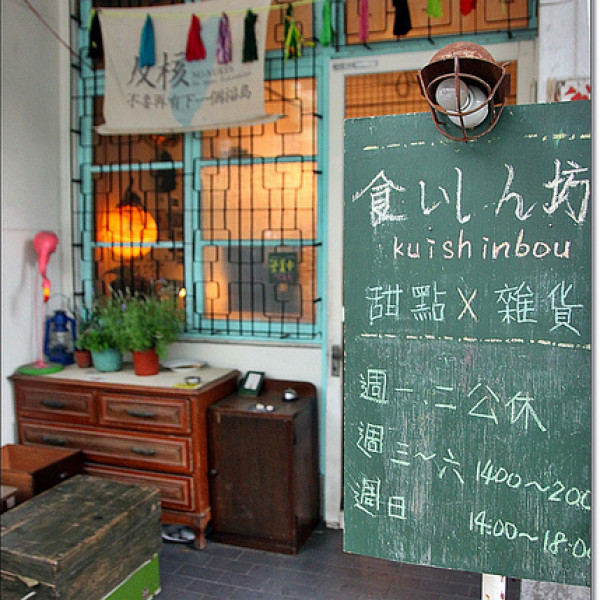 反核
NO NUKES
不要再有下一個福島
食いしん坊
kuishinbou
甜點 X 雜貨
週一.二公休
週三~六 1400~200
週日 14:00~18:00